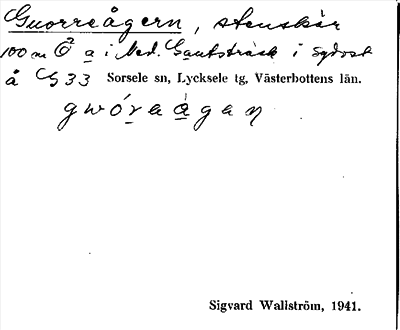 Guorreågern, stenskär
100 m Ö a i Ned. Gautsträsk i sydost
å G 33 Sorsele sn, Lycksele tg, Västerbottens län.
gwóreàgen
Sigvard Wallström, 1941.